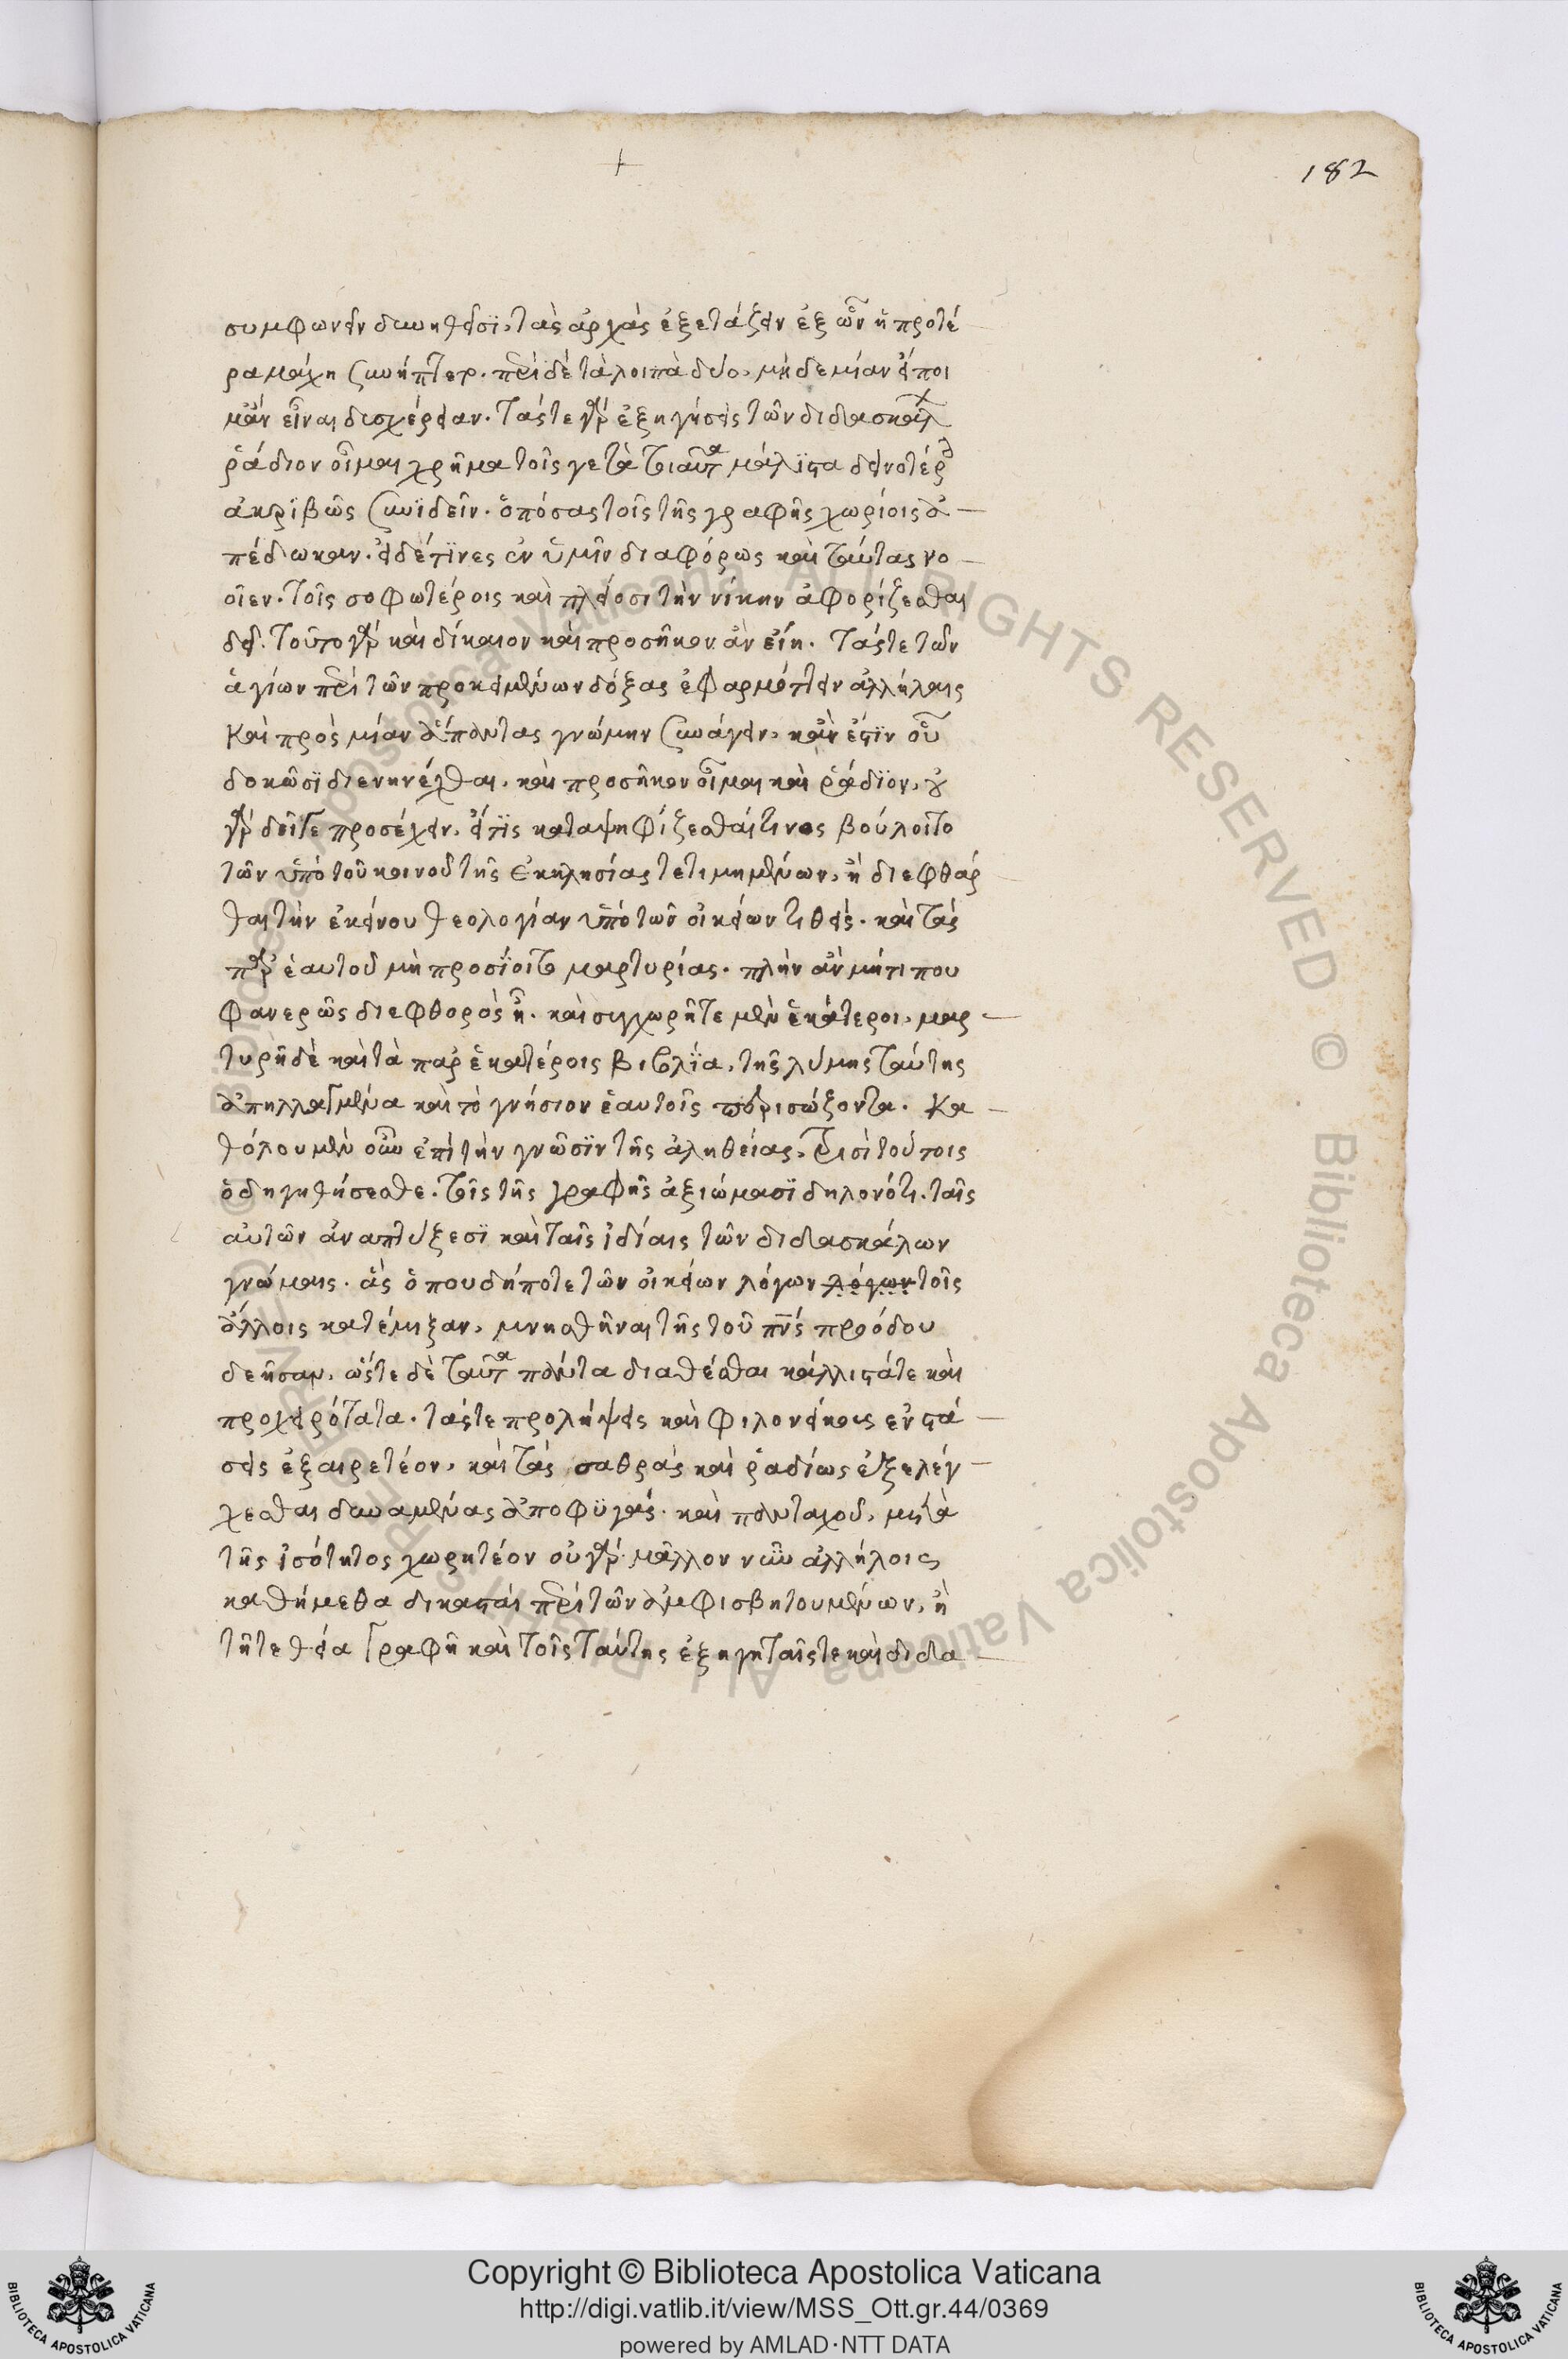 182
συμφωνεῖν δυνηθεῖσϊ, τὰς ἀρχὰς ἐξετάζειν ἐξ ὧν ἡ προτέ
ρα μάχη συνήπτετο. περὶ δὲ τὰ λοιπὰ δύο, μηδεμίαν εἴποι
μἂν εἶναι δυσχέρειαν. τάς τε γὰρ ἐξηγήσεις τῶν διδασκάλων
ῥάδιον οἶμαι χρῆμα τοῖς γε τὰ τοιαῦτα μάλϊστα δεινοτέροις
ἀκρϊβῶς συνϊδεῖν. ὁπόσας τοῖς τῆς γραφῆς χωρίοις ἀ
πέδωκαν. εἰ δέ τϊνες ἐν ὑμῖν διαφόρως καὶ ταύτας νο
οῖεν. τοῖς σοφωτέροις καὶ πλείοσι τὴν νίκην ἀφορίζεσθαι
δεῖ. τοῦτο γὰρ καὶ δίκαιον καὶ προσῆκον ἂν εἴη. τάς τε τῶν
ἁγίων περὶ τῶν προκειμένων δόξας ἐφαρμόττειν ἀλλήλαις
καὶ πρὸς μίαν ἅπαντας γνώμην συνάγειν, κἂν ἔστϊν οὗ
δοκῶσϊ διενηνέχθαι, καὶ προσῆκον οἶμαι καὶ ῥάδϊον, οὐ
γὰρ δεῖ γε προσέχειν, εἴ τϊς καταψηφίζεσθαί τινος βούλοιτο
τῶν ὑπὸ τοῦ κοινοῦ τῆς ἐκκλησίας τετιμημένων, ἢ διεφθάρ
θαι τὴν ἐκείνου θεολογίαν ὑπὸ τῶν οἰκείων τιθείς. καὶ τὰς
παρ' ἑαυτοῦ μὴ προσίοιτο μαρτυρίας. πλὴν ἂν μήτι που
φανερῶς διεφθορὸς ᾖ. καὶ συγχωρῆτε μὲν ἑκάτεροι, μαρ
τυρῇ δὲ καὶ τὰ παρ' ἑκατέροις βιβλΐα, τῆς λύμης ταύτης
ἀπηλλαγμένα καὶ τὸ γνήσιον ἑαυτοῖς περισώζοντα. κα
θόλου μὲν οὖν ἐπὶ τὴν γνῶσϊν τῆς ἀληθείας, τρισὶ τούτοις
ὁδηγηθήσεσθε. τοῖς τῆς γραφῆς ἀξιώμασϊ δηλονότι. ταῖς
αὐτῶν ἀναπτύξεσϊ καὶ ταῖς ἰδίαις τῶν διδασκάλων
γνώμαις. ἃς ὁπουδήποτε τῶν οἰκείων λόγων λόγων τοῖς
ἄλλοις κατέμιξαν, μνησθῆναι τῆς τοῦ πνς προόδου
δεῆσαν, ὥστε δὲ ταῦτα πάντα διαθέσθαι κάλλιστά τε καὶ
προχειρότατα. τάς τε προλήψεις καὶ φιλονείκους ἐνστά
σεις ἐξαιρετέον, καὶ τὰς σαθρὰς καὶ ῥαδίως ἐξελέγ
χεσθαι δυναμένας ἀποφϋγάς. καὶ πανταχοῦ, μετὰ
τῆς ἰσότητος χωρητέον οὐ γὰρ μᾶλλον νῦν ἀλλήλοις
καθήμεθα δικασταὶ περὶ τῶν ἀμφισβητουμένων, ἢ
τῇ τε θεία γραφῇ καὶ τοῖς ταύτης ἐξηγηταῖς τε καὶ διδα
Copyright © Biblioteca Apostolica Vaticana
http://digi.vatlib.it/view/MSS_Ott.gr.44/0369
powered by AMLAD·NTT DATA